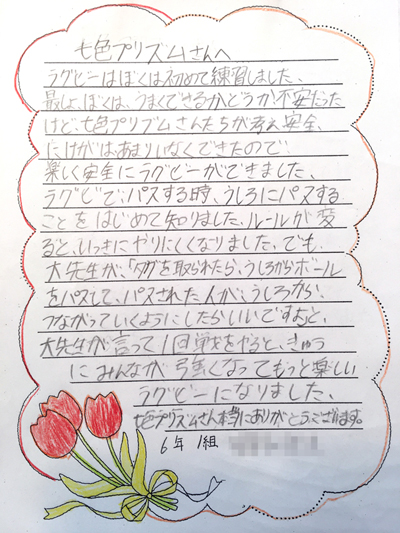 七色プリズムさんへ
ラグビーはぼくは初めて練習しました、
最しょ、ぼくは、うまくできるかどうか不安だった
けど、七色プリズムさんたちが考え安全、
にけがは、あまりいなくできたので、
楽しく安全にラグビーができました、
ラグビで、パスする時、うしろにパスする
ことをはじめて知りました、ルールが変
ると、いっきにやりにくくなりました、でも、
大先生が、「タグを取られたら、うしろからボール
をパスして、パスされた人が、うしろから、
つながっていくようにしたらいいですよ」と、
大先生が言って1回戦をやると、きゅう
にみんなが強くなってもっと楽しい
ラグビーになりました、
七色プリズムさん本当にありがとうございます。
6年 1組